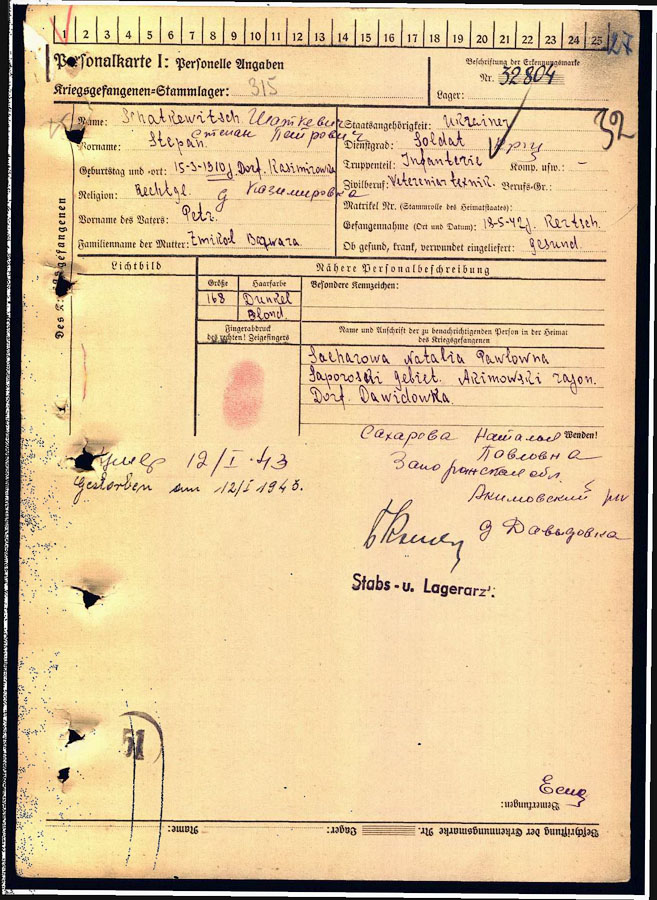 27
1 2 3 4 5 6 7 8 9 10 11 12 13 14 15 16 17 18 19 20 21 22 23 24 25
Personalkarte I: Personelle Angaben
Beschriftung der Erkennungsmarke
Nr. 32804
Kriegsgefangenen-Stammlager: 315
Lager:
32
Des Kriegsgefangenen
Name: Schatkewitsch Шаткевич
Vorname: Stepan. Степан Петрович
Geburtstag und -ort: 15-3-1910j. Dorf. Kasimirowka
Religion: Rechtgl. д Казимировка
Vorname des Vaters: Petr.
Familienname der Mutter:
Staatsangehörigkeit: Ukrainer
Dienstgrad: Soldat
Truppenteil: Infanterie Komp. usw.: –
Zivilberuf: Vetereniartexnik. Berufs-Gr.:
Matrikel Nr. (Stammrolle des Heimatstaates):
Gefangennahme (Ort und Datum): 18-5-42j. Kertsch.
Ob gesund, krank, verwundet eingeliefert: gesund.
Lichtbild
Nähere Personalbeschreibung
Größe
Haarfarbe
Besondere Kennzeichen:
168
Dunkel
Blond
Fingerabdruck
des rechten! Zeigefingers
Name und Anschrift der zu benachrichtigenden Person in der Heimat
des Kriegsgefangenen
Sacharowa Natalia Pawlowna
Saporoski gebiet. Akimowski rajon.
Dorf. Dawidowka.
Wenden!
Сахарова Наталья
Павловна
Запорожская обл.
Акимовский
д Давыдовка
Умер 12/I-43
Gestorben am 12/I 1943.
Stabs-u. Lagerarzt.
51
Bemerkungen:
Beschriftung der Erkennungsmarke Nr. Lager: Name: